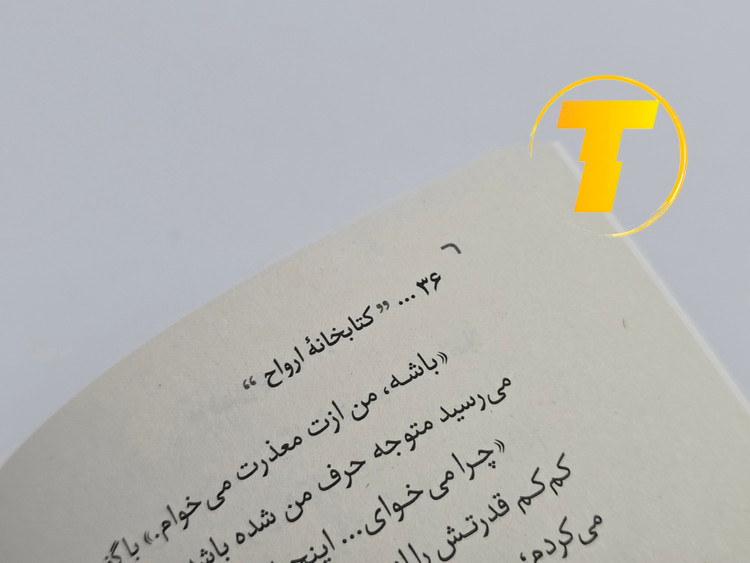 T
۳۶ ... ” کتابخانهٔ ارواح “
«باشه، من ازت معذرت می‌خوام.»
می‌رسید متوجه حرف من شده
«چرا می‌خوای...
کم‌کم قدرتش را
می‌کردم؛